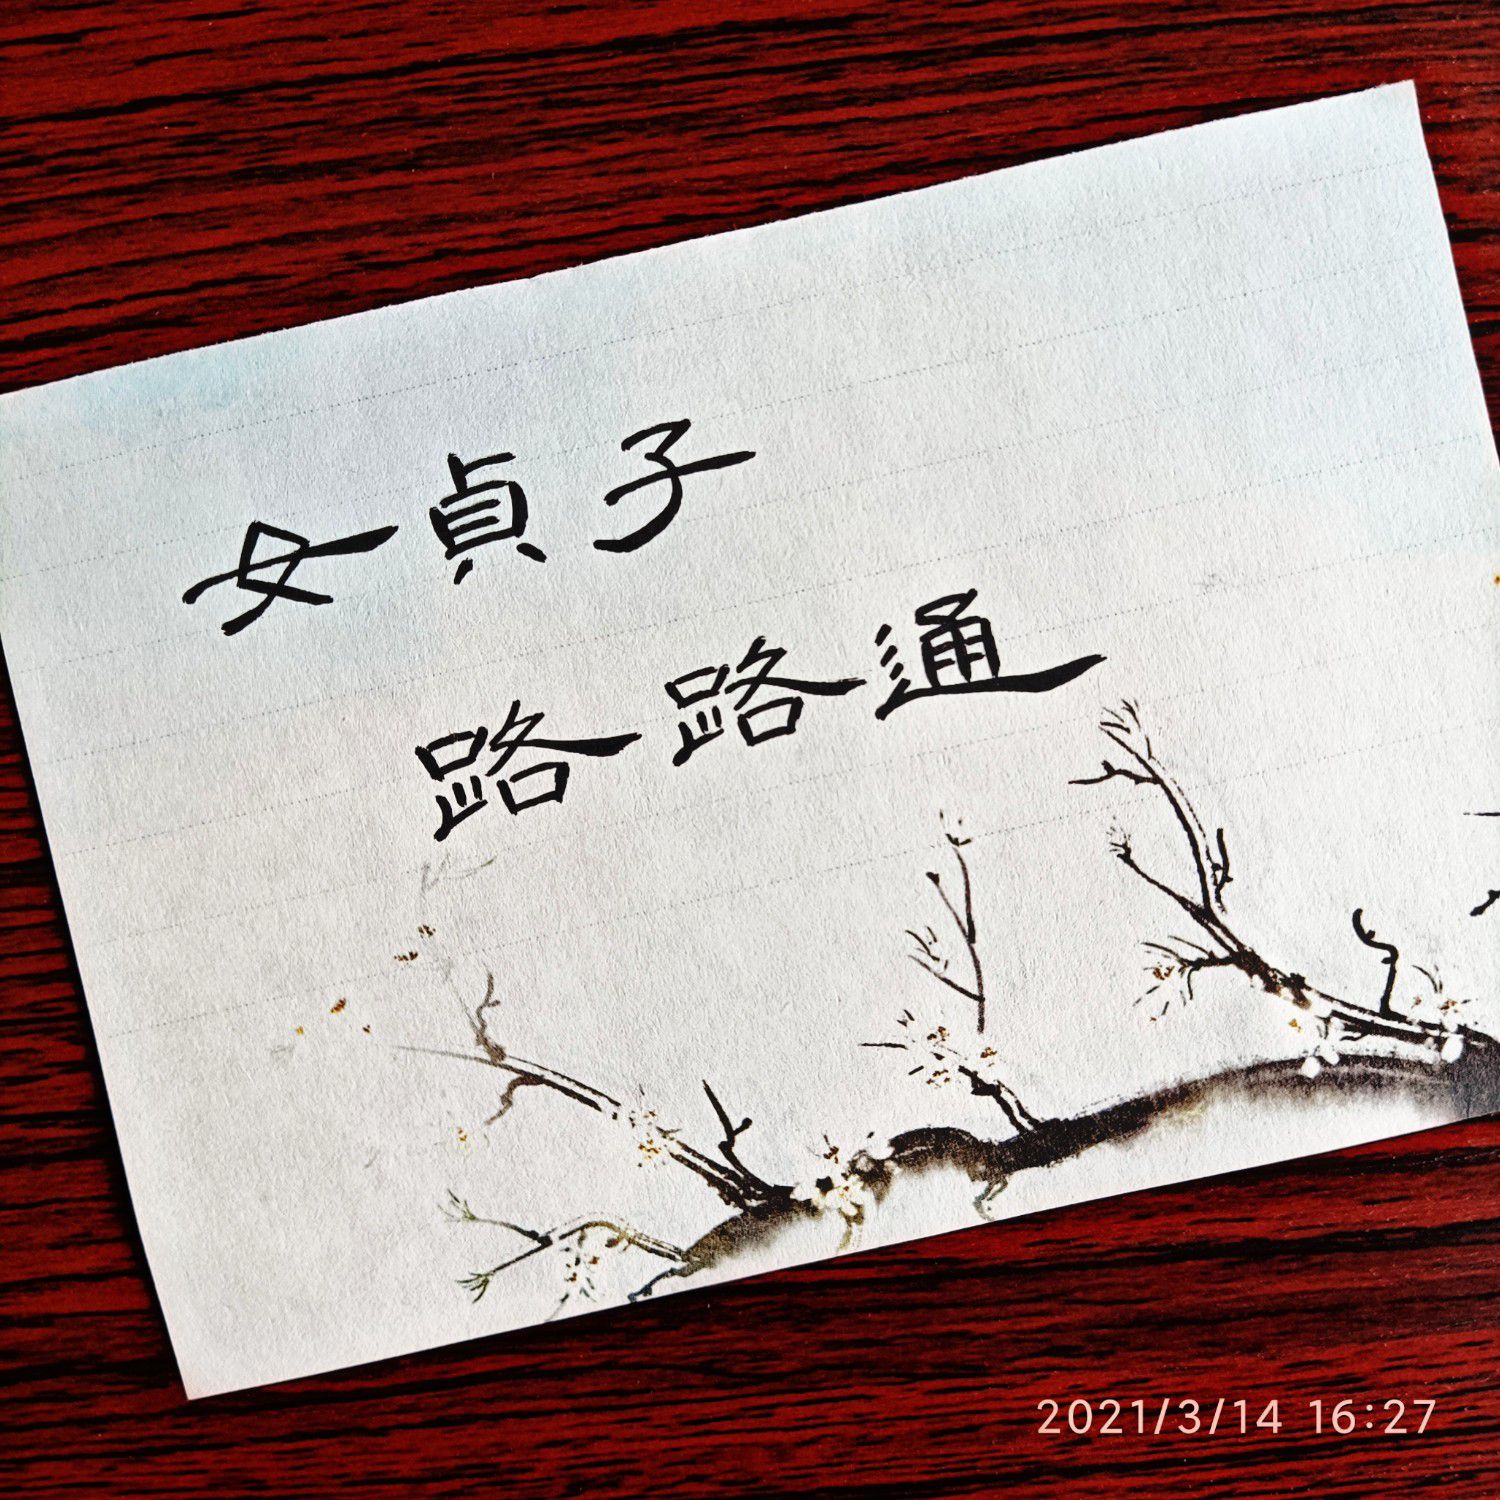 女貞子
路路通
2021/3/14 16:27